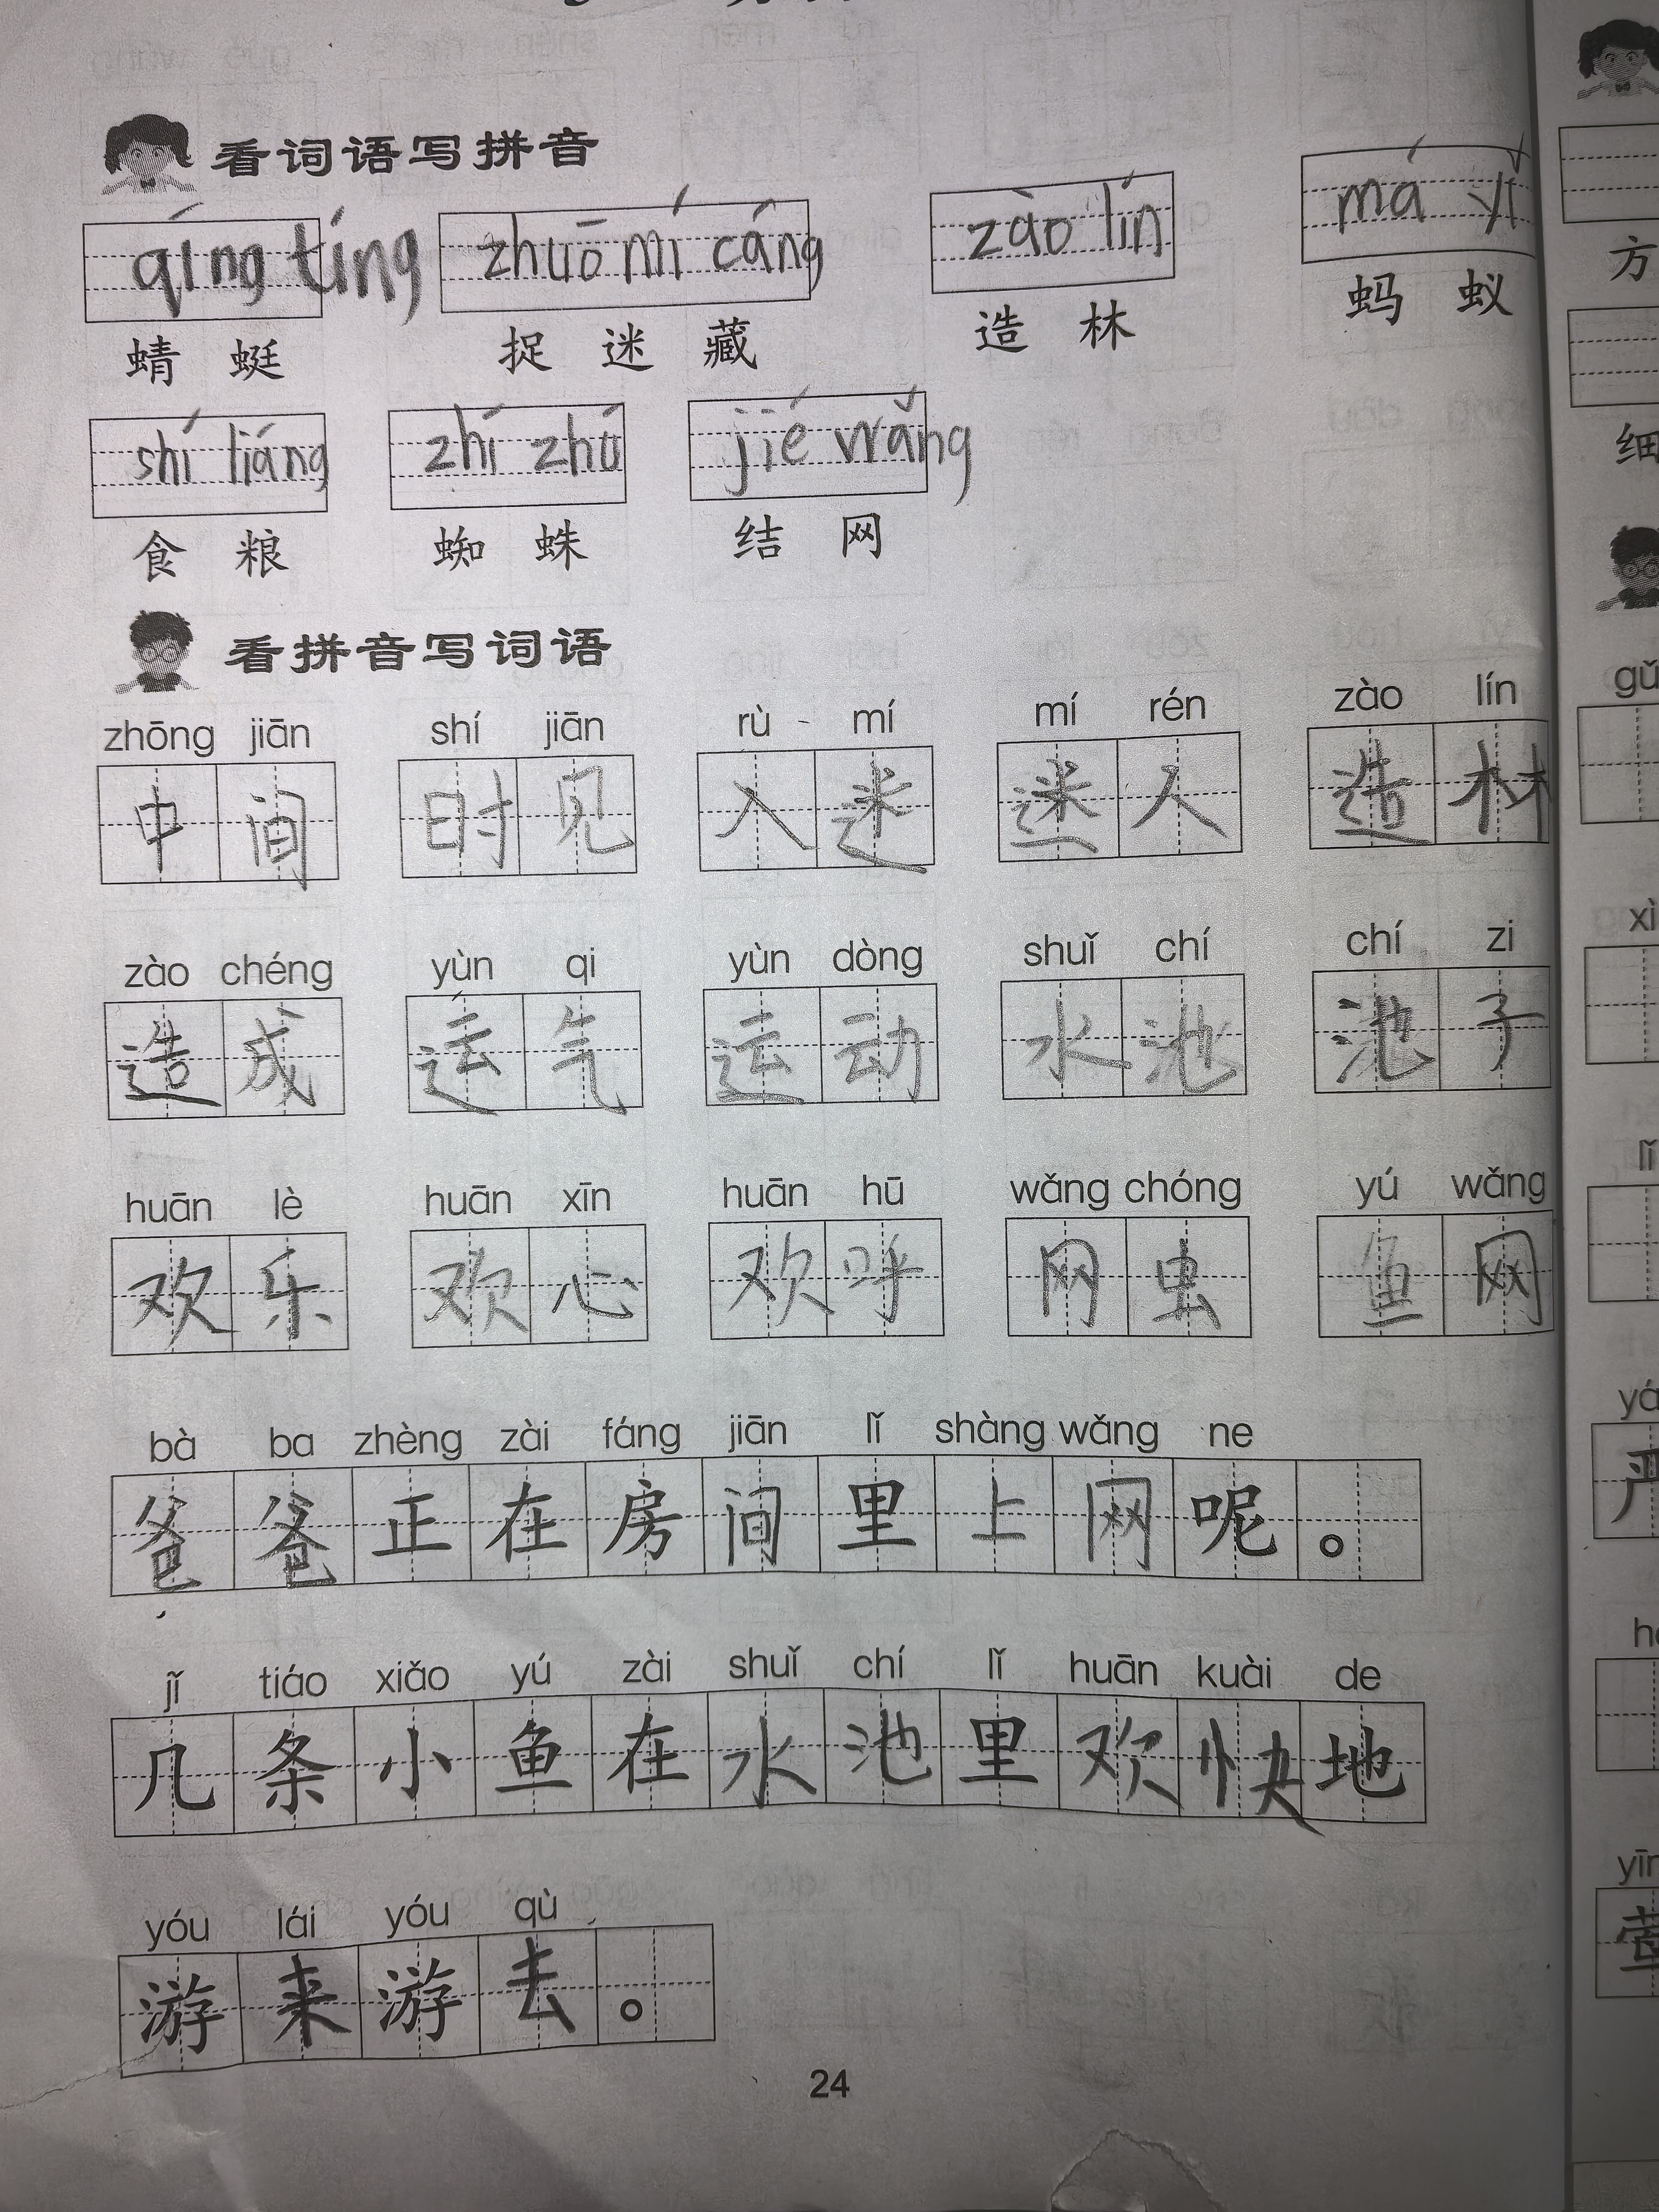 看词语写拼音
qíng tíng zhuō mí cáng zào lín má yǐ
蜻蜓 捉迷藏 造林 蚂蚁
方
shí liáng zhí zhú jié wrǎng
食粮 蜘蛛 结网
细
看拼音写词语
zhōng jiān shí jiān rù mí mí rén zào lín
中间 时见 入迷 迷人 造林
zào chéng yùn qi yùn dòng shuǐ chí chí zi
造成 运气 运动 水池 池子
huān lè huān xīn huān hū wǎng chóng yú wǎng
欢乐 欢心 欢呼 网虫 鱼网
bà ba zhèng zài fáng jiān lǐ shàng wǎng ne
爸爸正在房间里上网呢。
jǐ tiáo xiǎo yú zài shuǐ chí lǐ huān kuài de
几条小鱼在水池里欢快地
yóu lái yóu qù
游来游去。
24